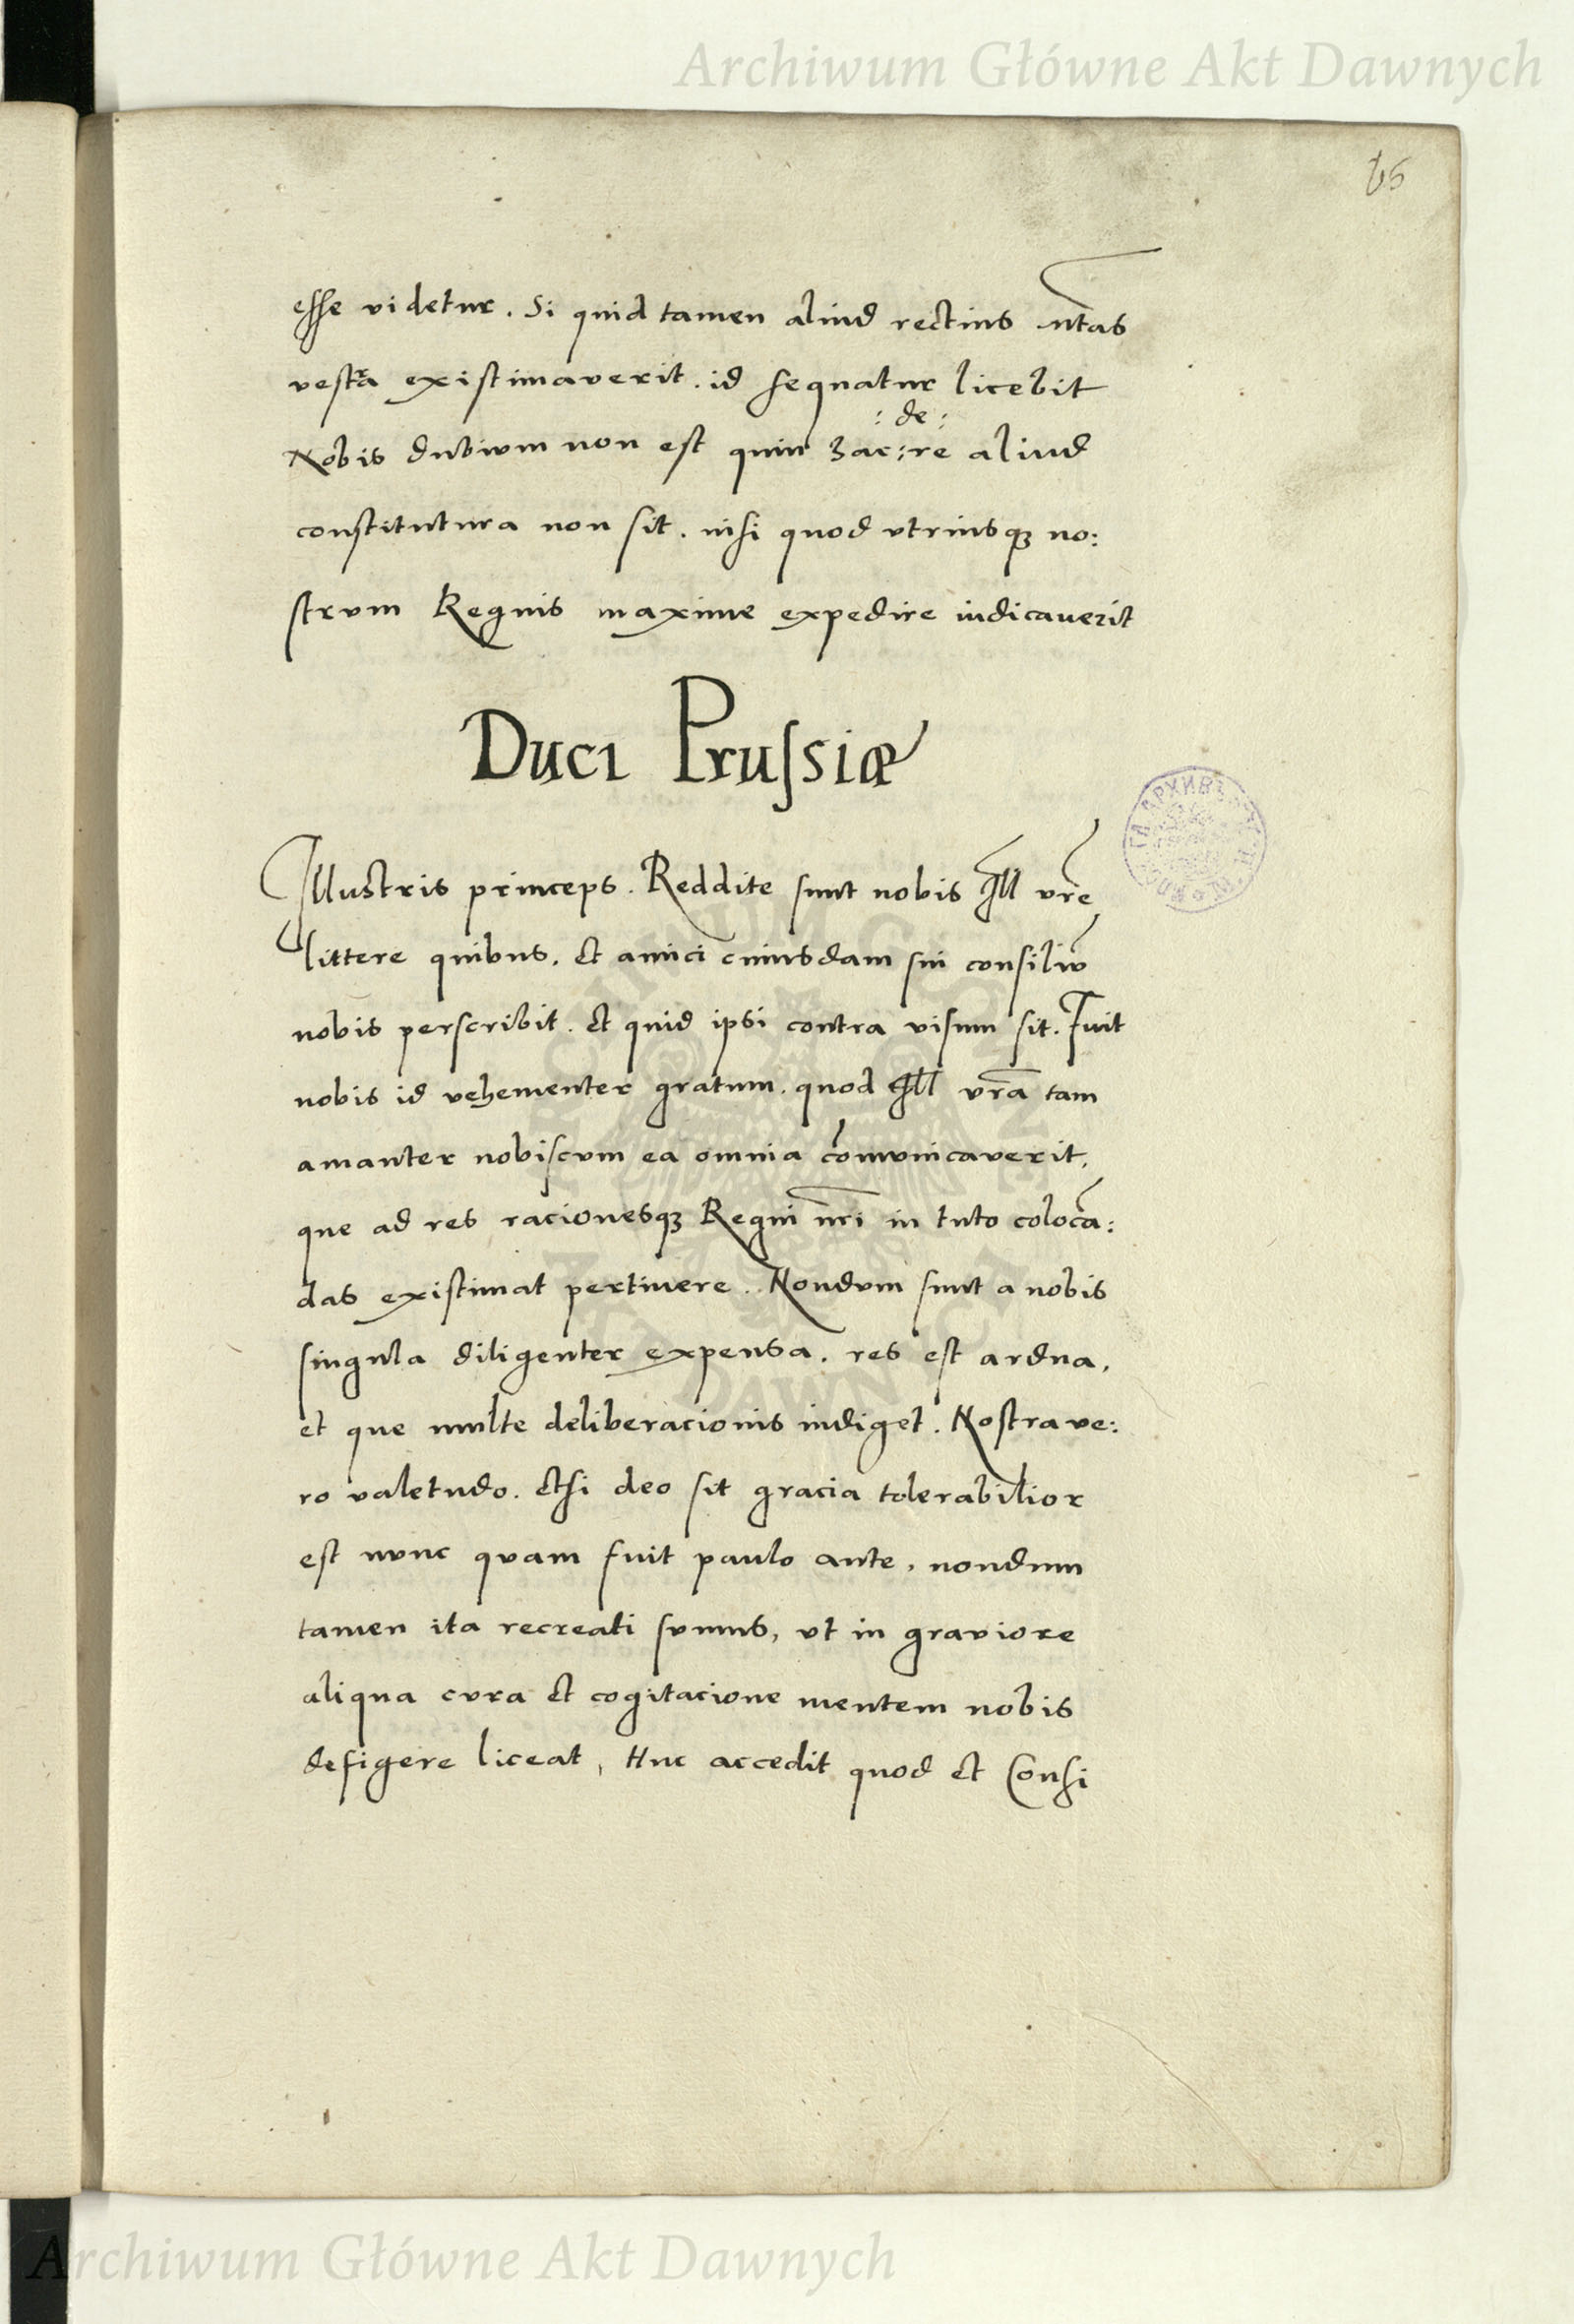 Archiwum Główne Akt Dawnych
65
esse videtur. Si quid tamen aliud rectius
vestra existimaverit. id sequatur licebit
: de :
Nobis dubium non est quin hac : re aliud
constitutura non sit. nisi quod utriusq3 no:
strvm Regnis maxime expedire iudicauerit
Duci Prussiæ
Illustris princeps. Reddite sunt nobis Ill vre
littere quibus. et amici cuiusdam sui consiliũ
nobis perscribit. et quid ipsi contra visum sit. Fuit
nobis id vehementer gratum. quod Ill vra tam
amanter nobiscvm ea omnia cõmvnicaverit.
que ad res racionesq3 Regni nri in tuto colocã:
das existimat pertinere. Nondvm sunt a nobis
singula diligenter expensa. res est ardua,
et que multe deliberacionis indiget. Nostra ve:
ro valetudo. etsi deo sit gracia tolerabilior
est nvnc qvam fuit paulo ante, nondum
tamen ita recreati svmus, vt in graviore
aliqua cvra et cogitacione mentem nobis
defigere liceat, Huc accedit quod et Consi
Archiwum Główne Akt Dawnych